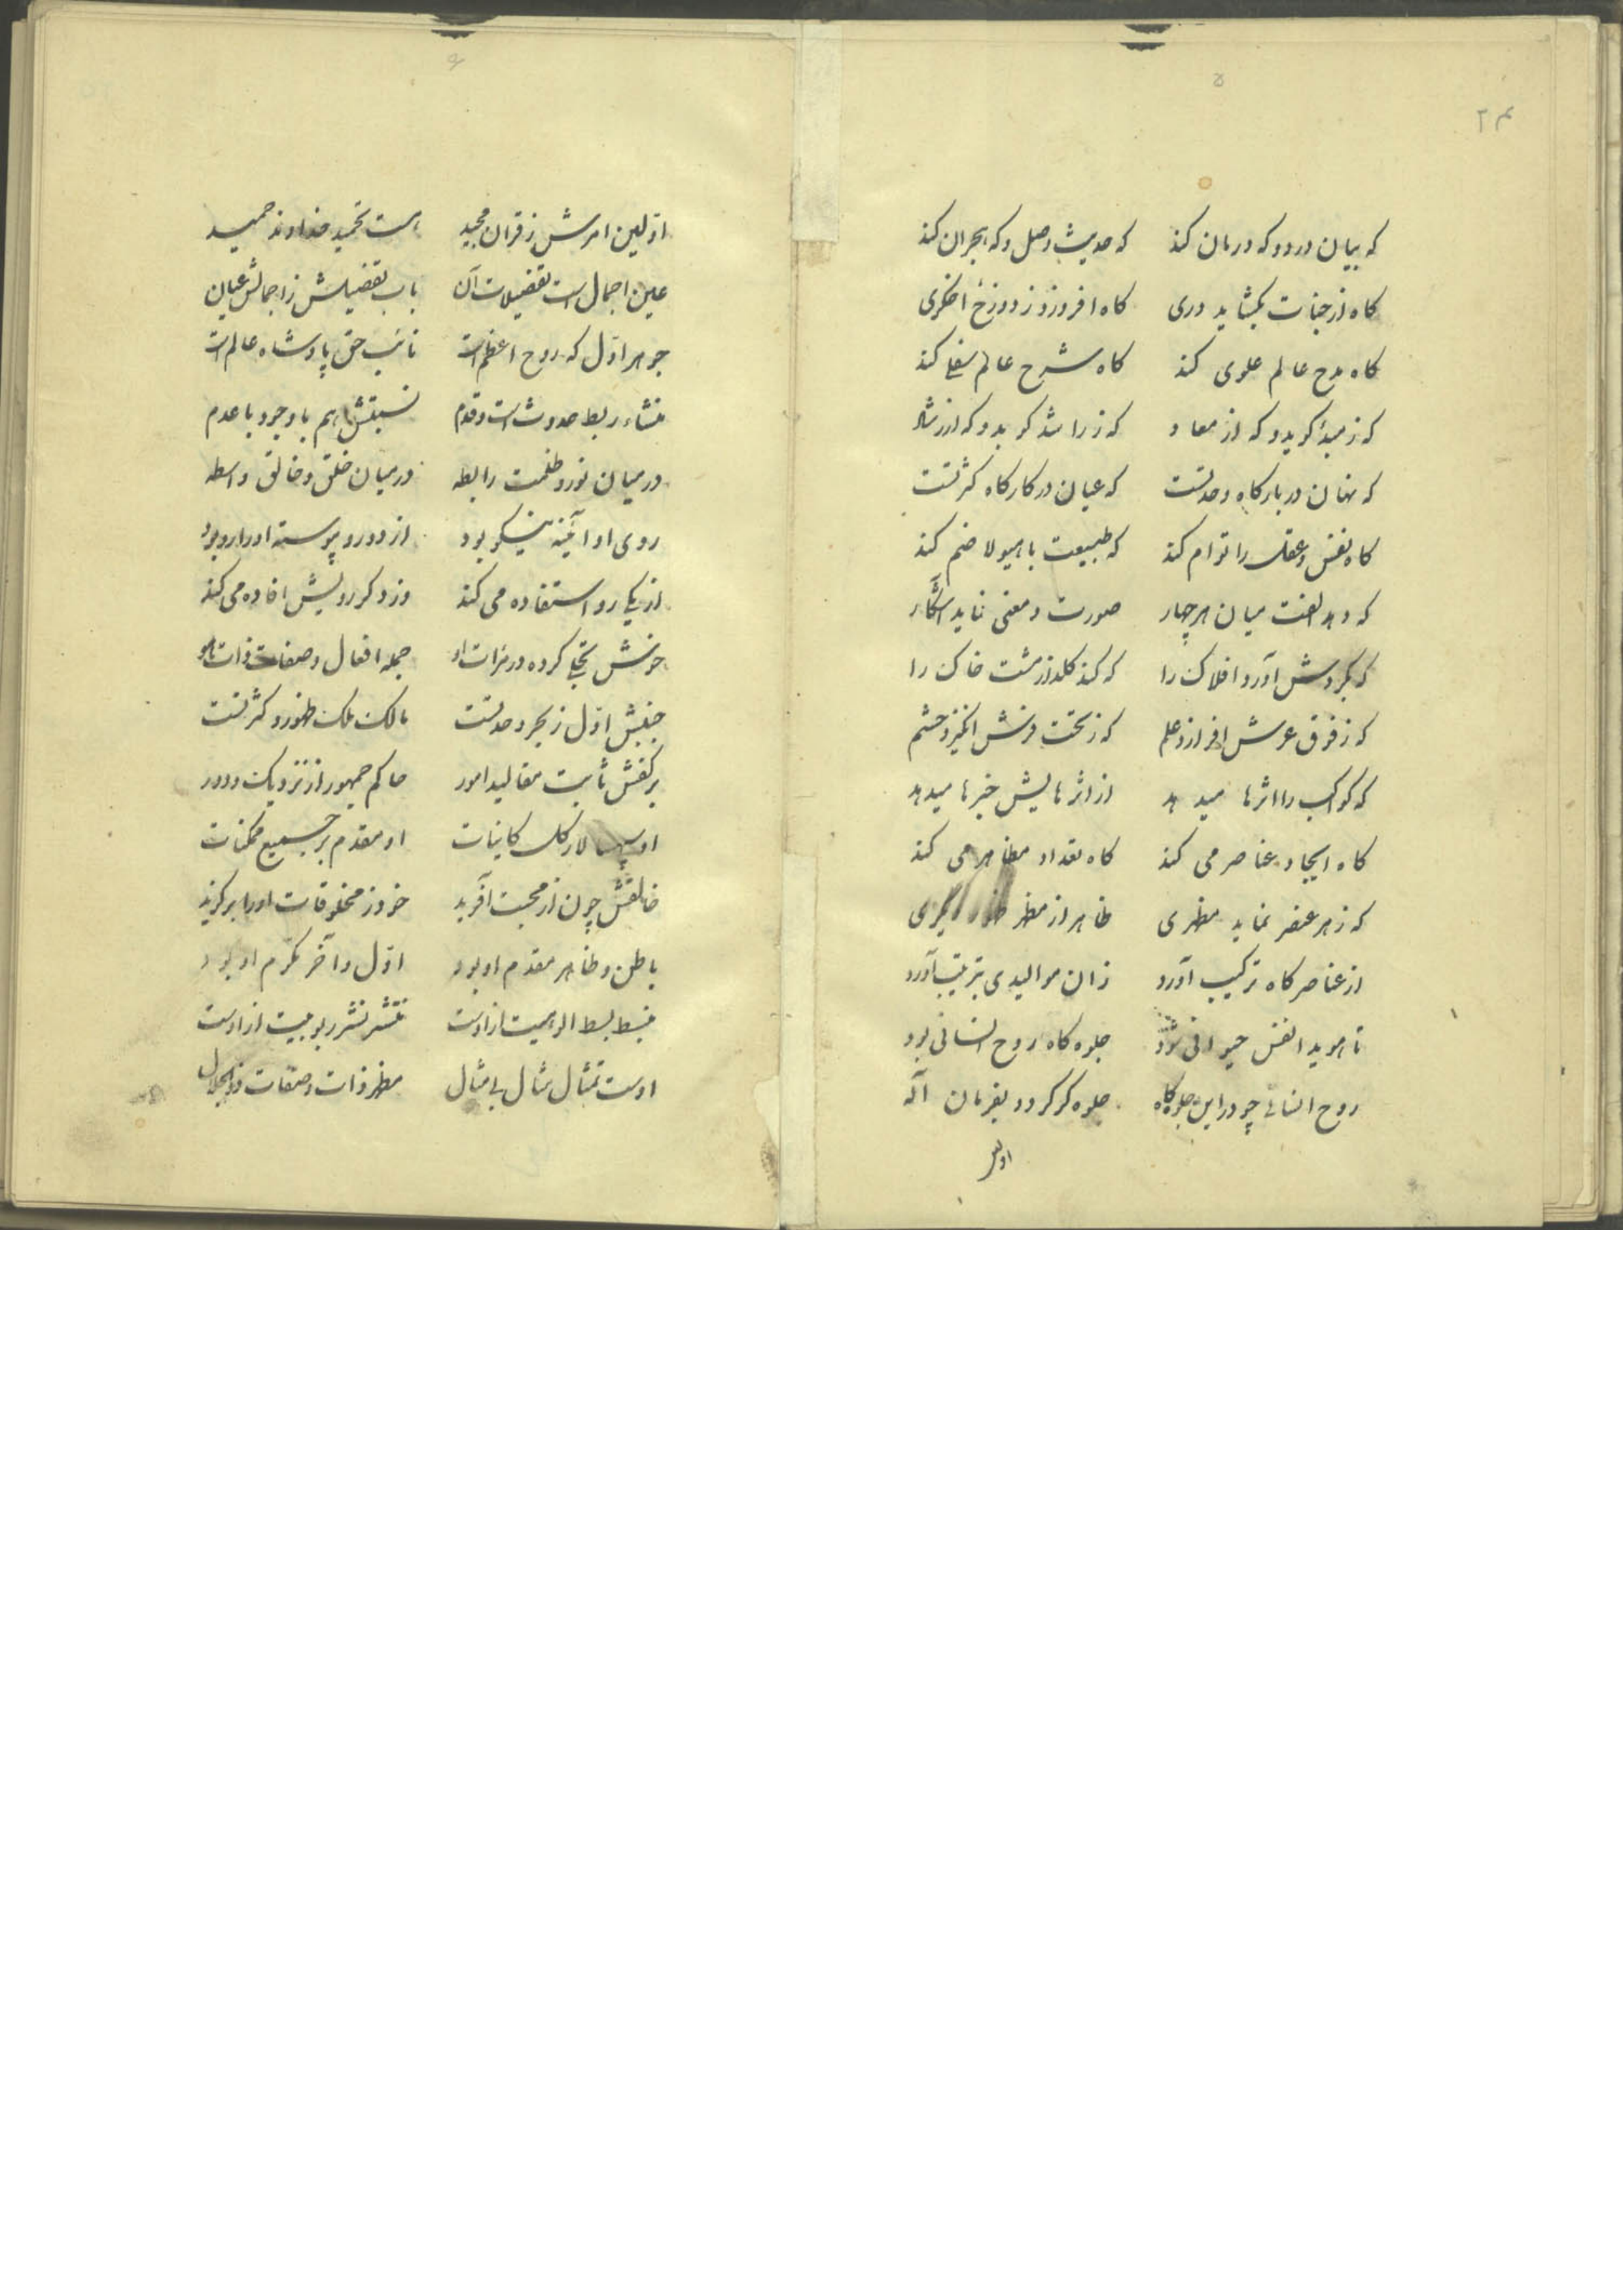 که بیان درد و که درمان کند که حدیث وصل و که هجران کند
کاه از جنات بکشاید دری کاه افروزد ز دوزخ اخکری
کاه مدح عالم علوی کند کاه شرح عالم سفلی کند
که ز مبدأ کوید و که از معاد که ز راشد کوید و که از رشاد
که نهان در بارکاه وحدتست که عیان در کارکاه کثرتست
کاه نفس و عقل را توام کند که طبیعت با هیولا ضم کند
که دهد الفت میان هر چهار صورت و معنی نماید آشکار
که بکردش آورد افلاک را که کند کلدار مشت خاک را
که ز فوق عرش افرازد علم که ز تخت فرش انکیزد حشم
که کواکب را اثرها میدهد از اثرهایش خبرها میدهد
کاه ایجاد عناصر می کند کاه تعداد مظاهر می کند
که ز هر عنصر نماید مظهری ظاهر از مظهر
از عناصر کاه ترکیب آورد زان موالیدی بترتیب آورد
تا هویدا نفس حیوانی شود جلوه کاه روح انسانی بود
روح انسانی چو در این جلوه کاه جلوه کر کردد بفرمان آله
اولین
اولین امرش ز قران مجید هست تحمید خداوند حمید
عین اجمال است تفضیلات آن باب تفضیلش ز اجمالش عیان
جوهر اول که روح اعظم است نائب حق پادشاه عالم است
منشاء ربط حدوث است و قدم نسبتش هم با وجود با عدم
در میان نور و ظلمت رابطه در میان خلق و خالق واسطه
روی او آئینه نیکو بود از دو رو پیوسته او را رو بود
از یکی رو استفاده می کند وز دکر رویش افاده می کند
خوش تجلی کرده در مرات او جمله افعال و صفات ذات هو
جنبش اول ز بحر وحدتست مالک ملک ظهور و کثرتست
بر کفش ثابت مقالید امور حاکم جمهور از نزدیک و دور
او سپهسالار کل کاینات او مقدم بر جمیع ممکنات
خالقش چون از محبت آفرید خود ز مخلوقات او را برکزید
باطن و ظاهر مقدم او بود اول و آخر مکرم او بود
منبسط بسط الوهیت از اوست منتشر نشر ربوبیت از اوست
اوست تمثال مثال بی مثال مظهر ذات و صفات ذوالجلال